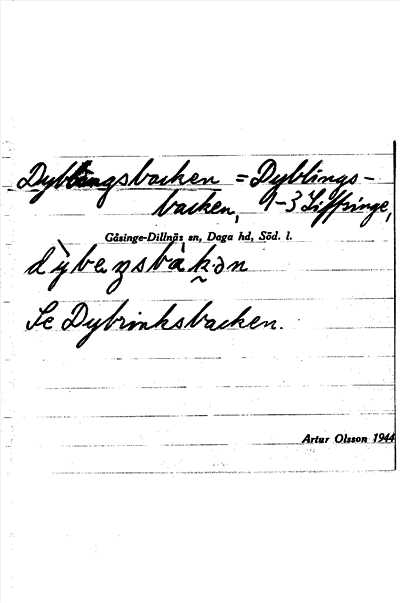 Dyblingsbacken = Dyblings-
backen, 1-3 Siffringe,
Gåsinge-Dillnäs sn, Daga hd, Söd. l.
dỳbeŋsbàk̰ən
Se Dybrinksbacken.
Artur Olsson 1944